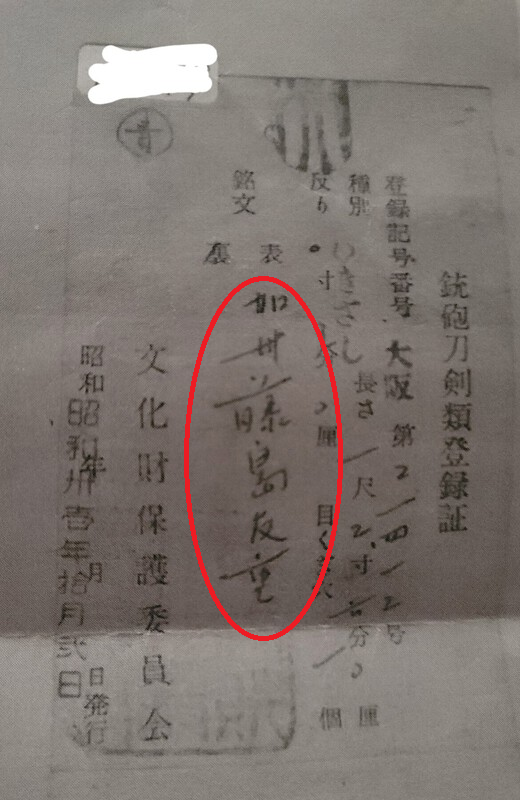 銃砲刀剣類登録証
登録記号番号 大阪 第21412号
種別 わきざし 長さ 1尺2寸 分 厘
反り 0寸 分 厘 目くぎ穴 1個
銘文 表 加卅藤島友重
裏
文化財保護委員会
昭和 年 月 日発行
昭和卅壱年拾月弐日